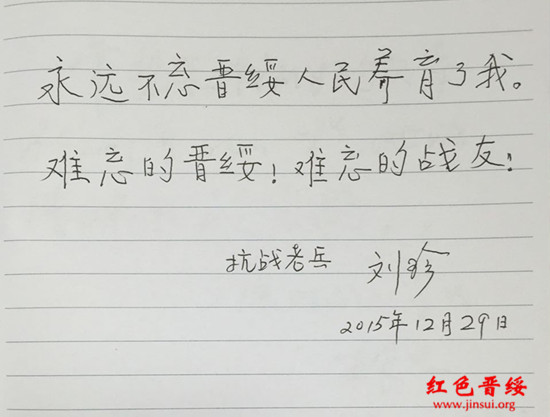 永远不忘晋绥人民养育了我。
难忘的晋绥！难忘的战友！
抗战老兵 刘珍
2015年12月29日
红色晋绥
www.jinsui.org